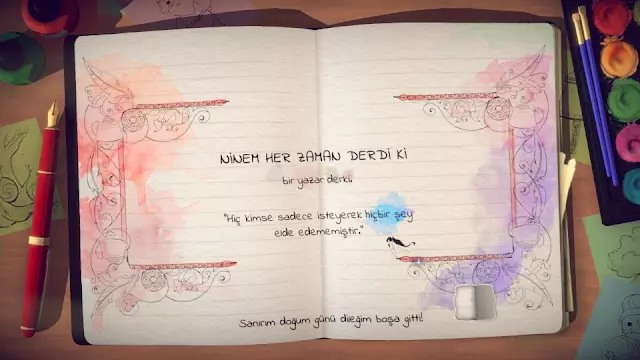 NİNEM HER ZAMAN DERDİ Kİ
bir yazar derki.
"Hiç kimse sadece isteyerek hiçbir şey
elde edememiştir."
Sanırım doğum günü dileğim boşa gitti!